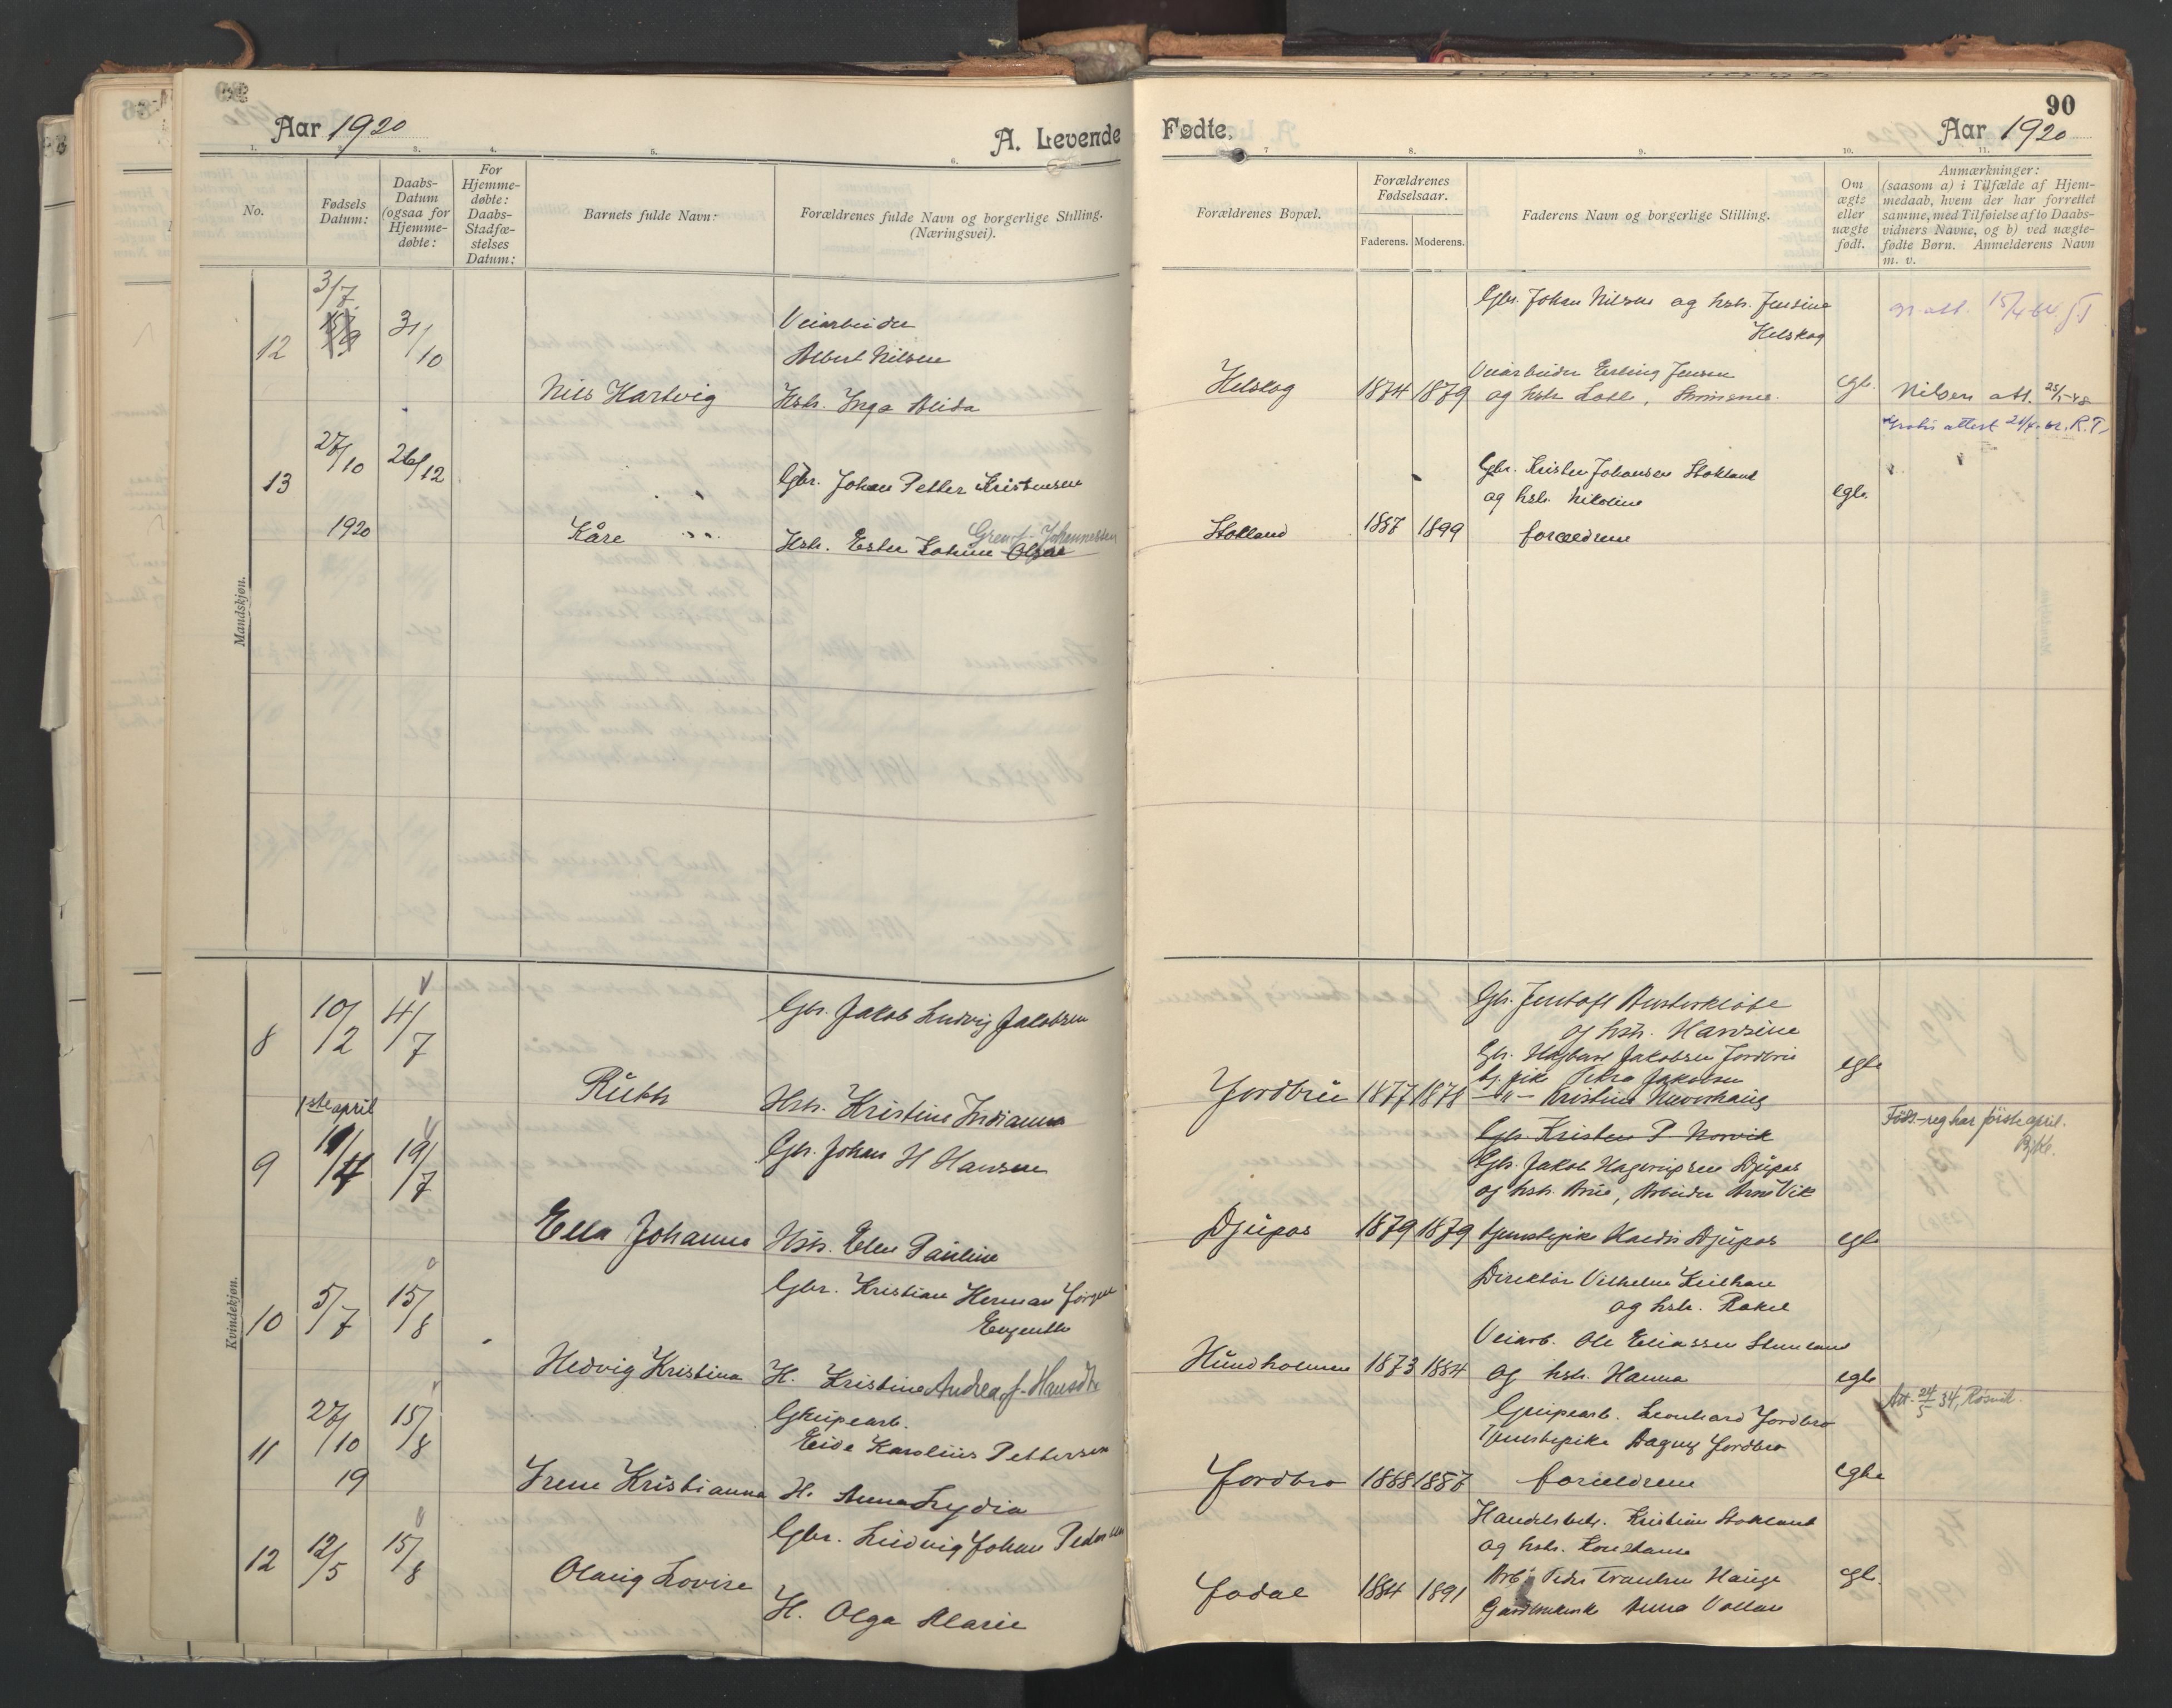 90
Aar 1920
A. Levende Fødte.
Aar 1920
1. 3. 4. 5. 6. 7 8. 9. 10. 11.
No.
Fødsels Datum:
Daabs-Datum (ogsaa for Hjemme-døbte:
For Hjemme-døbte: Daabs-Stadfæ-stelses Datum:
Barnets fulde Navn:
Forældrenes fulde Navn og borgerlige Stilling. (Næringsvei).
Forældrenes Bopæl.
Forældrenes Fødselsaar.
Faderens. Moderens.
Faderens Navn og borgerlige Stilling.
Om ægte eller uægte født.
Anmærkninger:
(saasom a) i Tilfælde af Hjem-
medaab, hvem der har forrettet
samme, med Tilføielse af to Daabs-
vidners Navne, og b) ved uægte-
fødte Børn. Anmelderens Navn
m. v.
Mandskjøn.
12
3/7
31/10
Nils Hartvig
Veiarbeider
Albert Nilsen
Hstr. Inga Alida
Helskog
1874 1879
Gbr. Johan Nilsen og hstr. Jensine
Helskog
Veiarbeider Erling Jensen
og hstr.
egte.
15/4 64 J.T
Nilsen att. 25/5-48
Gratis attest R.T.
13
27/10
1920
26/12
Kåre
Gbr. Johan Petter Kristensen
Gren f. Johannessen
Hstr. Ester
Stokland
1887 1899
Gbr. Kristen Johansen Stokland
og hstr. Nikoline
forældrene
egte.
Kvindekjøn.
8
10/2
4/7
Ruth
Gbr. Jakob Ludvig Jakobsen
Hstr. Kristine Indianna
Jordbru
1877 1878
Gbr. Jentoft
og hstr. Hansine
Gbr. Hagbart Jakobsen Jordbru
tj. pike Petra Jakobsen
—"— Kristine
egte
9
1ste april
19/7
Ella Johanne
Gbr. Johan H Hansen
Hstr. Elen Pauline
Djupos
1879 1879
Gbr. Kristen P. Norvik
Gbr. Jakob Hagerupsen Djupos
og hstr. Arbeider Arne Vik
tjenestepike Djupos
egte
Føds.-reg har första april.
10
5/7
15/8
Hedvig Kristina
Gbr. Kristian Herman Jörgen
H. Kristine Andrea f. Hansdtr
Hundholmen
1873 1884
Direktör Vilhelm Keilhau
og hstr. Rakel
Veiarb. Ole Eliassen
og hstr. Hanna
egte
11
27/10
19
15/8
Irene Kristianna
Grupearb.
Eide Karolius Pettersen
H. Anna Lydia
Jordbro
1888 1887
Grupearb. Leonhard Jordbro
Tjenestepike Dagny Jordbro
forældrene
egte
Att. 24/5 34, Røsvik.
12
12/5
15/8
Olaug Lovise
Gbr. Ludvig Johan Pedersen
H. Olga Marie
Fodal
1884 1891
Handelsbetj. Kristian Stokland
og hstr. Konstanse
Arb. Peder Hauge
Anna Vollan
egte.